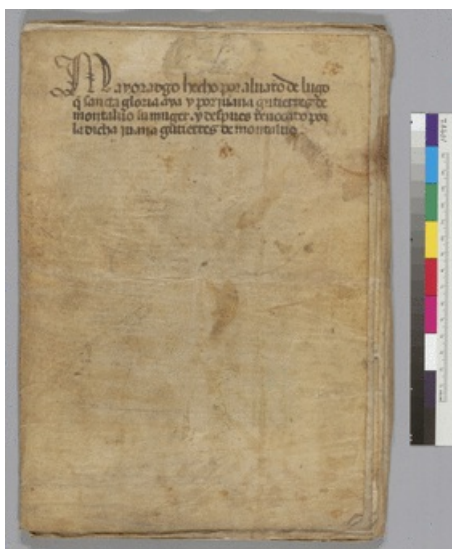 Mayoradgo hecho por aluaro de lugo
q̃ sancta gloria aya y por juana gutierrez de
montaluo su muger. y despues reuocato por
la dicha juana gutierres de montaluo.